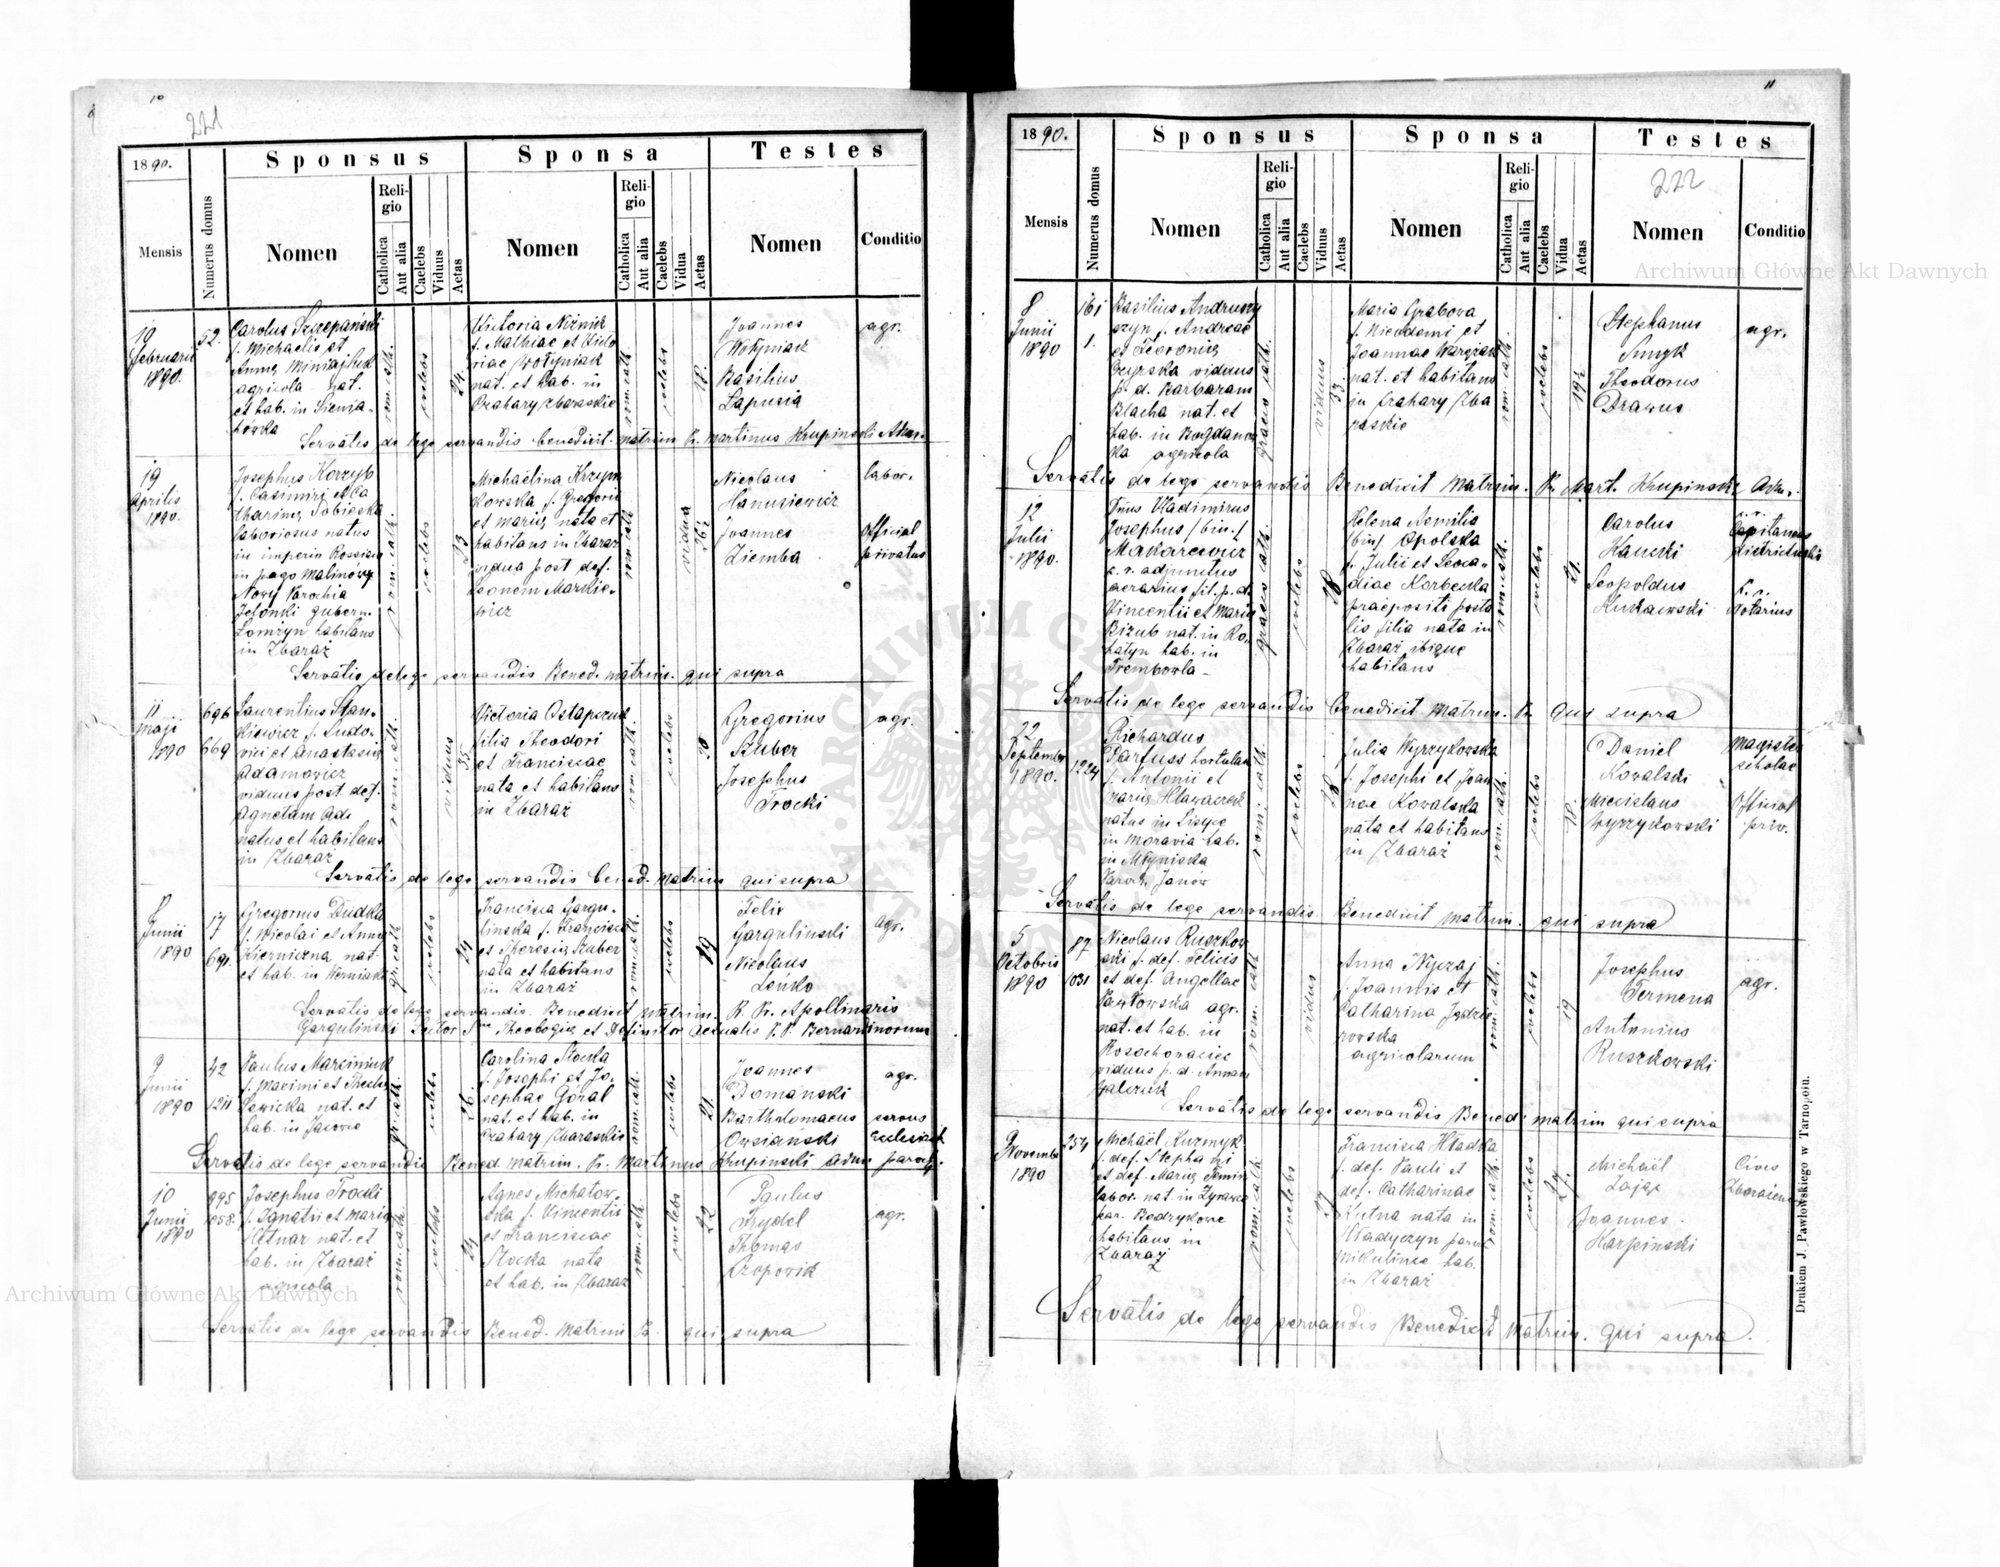 10
221
1890.
Sponsus
Sponsa
Testes
Mensis
Numerus domus
Nomen
Religio
Catholica
Aut alia
Caelebs
Viduus
Aetas
Nomen
Religio
Catholica
Aut alia
Caelebs
Vidua
Aetas
Nomen
Conditio
19
Februarii
1890.
52.
Carolus Szczepański
f. Michaelis et
Annae
agricola nat.
et hab. in Sienia-
chówka
rom. cath.
coelebs
24.
Victoria Niżnik
f. Mathiae et Victo
riae Wołyniak
nat. et hab. in
Czahary zbaraskie
rom. cath.
coelebs
18.
Joannes
Wołyniak
Basilius
Łapusia
agr.
Servatis de lege servandis benedixit matrim. Pr. Martinus Krupinski Adm.
19
Aprilis
1890.
Josephus Korzyb
f. Casimiri et Ca
tharinae Sobieska
laboriosus natus
in imperio Rossiaco
in pago Malinówka
Nowy Parochia
gubern.
Łomżyn habitans
in Zbaraż
rom. cath.
coelebs
23
Michaelina Krzyża
kowska f. Gregorii
et Mariae nata et
habitans in Zbaraż
vidua post def.
Leonem Markie-
wicz
rom. cath.
vidua
26½
Nicolaus
Hanusiewicz
Joannes
Ziemba
labor.
Official
privatus
Servatis de lege servandis Bened. matrim. qui supra
11
Maji
1890
696
669
Laurentius Stan-
kiewicz f. Ludo-
vici et Anastasiae
Adamowicz
viduus post def.
Agnetam
natus et habitans
in Zbaraż
rom. cath.
viduus
35.
Victoria Ostapczuk
filia Theodori
et Franciscae
nata et habitans
in Zbaraż
rom. cath.
coelebs
30
Gregorius
Szuber
Josephus
Trocki
agr.
Servatis de lege servandis bened. matrim qui supra
8
Junii
1890
17
691.
Gregorius Dudka
f. Nicolai et Annae
Kierniczna nat.
et hab. in Werniaki
gr. cath.
coelebs
24
Francisca Gargu-
linska f. Francisci
et Theresiae Szuber
nata et habitans
in Zbaraż
rom. cath.
coelebs
19
Felix
Gargulinski
Nicolaus
Lenko
agr.
Servatis de lege servandis. Benedixit matrim. R. Pr. Apollinaris
Gargulinski Lector Theologiae et Definitor actualis P.P. Bernardinorum
9
Junii
1890
42
1211
Paulus Marciniuk
f. Maximi et Theclae
Sawicka nat. et
hab. in Jacowce
gr. cath.
coelebs
26.
Carolina Stocka
f. Josephi et Jo-
sephae Góral
nat. et hab. in
Czahary Zbaraskie
rom. cath.
coelebs
21.
Joannes
Domanski
Bartholomaeus
Owsiański
agr.
servus
Ecclesiae
Servatis de lege servandis Bened. matrim. Pr. Martinus Krupinski Adm paroch.
10
Junii
1890
995
1058.
Josephus Trocki
f. Ignatii et Mariae
Kitnar nat. et
hab. in Zbaraż
agricola
rom. cath.
coelebs
24
Agnes Michałow-
ska f. Vincentii
et Franciscae
Stocka nata
et hab. in Zbaraż
rom. cath.
coelebs
22
Paulus
Frydel
Thomas
Prokopowicz
agr.
Servatis de lege servandis Bened. Matrim Pr. qui supra
11
1890.
Sponsus
Sponsa
Testes
222
Mensis
Numerus domus
Nomen
Religio
Catholica
Aut alia
Caelebs
Viduus
Aetas
Nomen
Religio
Catholica
Aut alia
Caelebs
Vidua
Aetas
Nomen
Conditio
8
Junii
1890
161
1.
Basilius Andruszy
szyn f. Andreae
et Fevroniae
Czyrska viduus
p. d. Barbaram
Blacha nat. et
hab. in Bogdanow
ka agricola
graeco cath.
viduus
33.
Maria Grabowa
f. Nicodemi et
Joannae
nat. et habitans
in Czahary Zba
raskie
rom. cath.
coelebs
19½
Stephanus
Smyk
Theodorus
Drawus
agr.
Servatis de lege servandis Benedixit Matrim. Pr. Mart. Krupinski Adm.
12
Julii
1890.
Dnus Vladimirus
Josephus /bin./
Makarewicz
c. r. adjunctus
aerarius fil. p. d.
Vincentii et Mariae
Bizub nat. in Ro-
hatyn hab. in
Trembowla
graeco cath.
coelebs
28
Helena Aemilia
/bin/ Opolska
f. Julii et Leoca-
diae Korbecka
praepositi posta
lis filia nata in
Zbaraż ibique
habitans
rom. cath.
coelebs
21.
Carolus
Hauski
Leopoldus
Kukawski
c. r.
Capitaneus
districtualis
c. r.
Notarius
Servatis de lege servandis benedixit Matrim. Pr. qui supra
22
Septembr
1890.
1224
Richardus
Parfuss hortulan
f. Antonii et
Mariae Hlawaczek
natus in
in Moravia hab.
in Młyniska
Paroch. Janów
rom. cath.
coelebs
28
Julia Wyrzykowska
f. Josephi et Joan
nae Kowalska
nata et habitans
in Zbaraż
rom. cath.
coelebs
18.
Daniel
Kowalski
Miecislaus
Wyrzykowski
Magister
scholae
Official
priv.
Servatis de lege servandis Benedixit matrim. qui supra
5
Octobris
1890
87
1031
Nicolaus Ruszkow
ski f. def. Felicis
et def. Angellae
Pawłowska agr.
nat. et hab. in
Rosochowaciec
viduus p. d. Annam
Galczuk
rom. cath
viduus
Anna Nyczaj
f. Joannis et
Catharina Jędrze
rowska
agricolarum
rom. cath.
coelebs
19
Josephus
Termena
Antonius
Ruszkowski
agr.
Servatis de lege servandis Bened. matrim qui supra
9
Novembr
1890
254
Michaël Kuzmyk
f. def. Stephani
et def. Mariae
labor. nat. in Zyrawce
par. Bodrykowce
habitans in
Zbaraż
rom. cath.
coelebs
27
Francisca Hładka
f. def. Pauli et
def. Catharinae
Kutna nata in
Hładyczyn paroch.
Mikulince hab.
in Zbaraż
rom. cath.
coelebs
24.
Michaël
Zając
Joannes
Karpinski
Cives
Zbaraienses
Servatis de lege servandis Benedixit Matrim. qui supra.
Drukiem J. Pawłowskiego w Tarnopolu.
ARCHIWUM GŁÓWNE AKT DAWNYCH
Archiwum Główne Akt Dawnych
Archiwum Główne Akt Dawnych